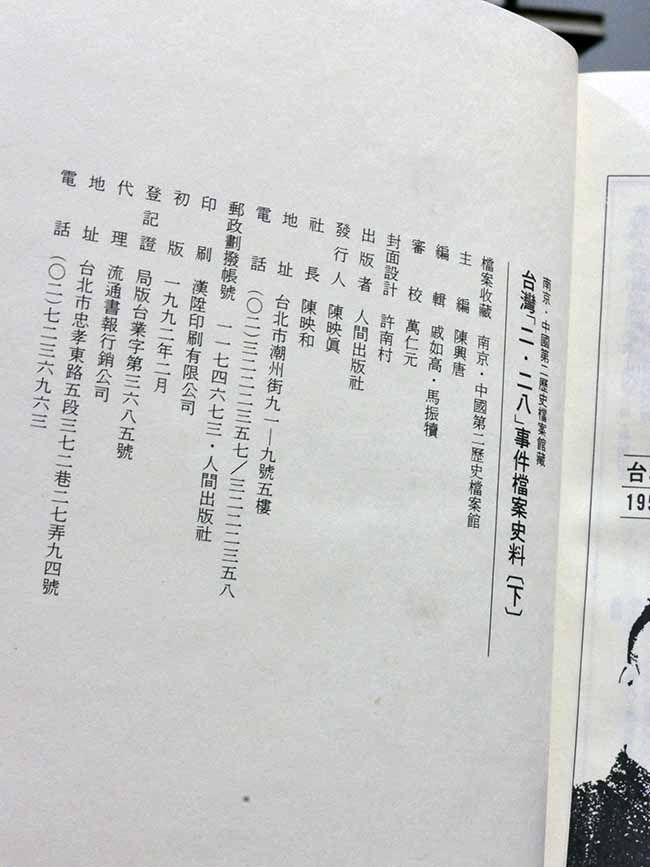 南京・中國第二歷史檔案館藏
台灣「二・二八」事件檔案史料〔下〕
檔案收藏 南京・中國第二歷史檔案館
主編 陳興唐
編輯 戚如高・馬振犢
審校 萬仁元
封面設計 許南村
出版者 人間出版社
發行人 陳映眞
社長 陳映和
地址 台北市潮州街九一—九號五樓
電話 (〇二)三二二二三五七/三二二二三五八
郵政劃撥帳號 一一七四六七三・人間出版社
印刷 漢陞印刷有限公司
初版 一九九二年二月
登記證 局版台業字第三六八五號
代理 流通書報行銷公司
地址 台北市忠孝東路五段三七二巷二七弄九四號
電話 (〇二)七二三六九六三
台
195